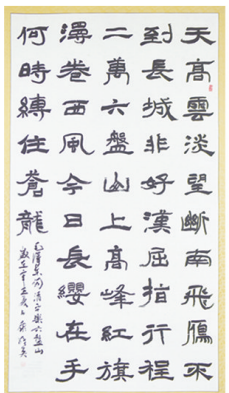 天高雲淡望斷南飛鴈不
到長城非好漢屈指行程
二萬六盤山上高峰紅旗
漫卷西風今日長纓在手
何時縛住蒼龍
毛澤東詞清平樂六盤山